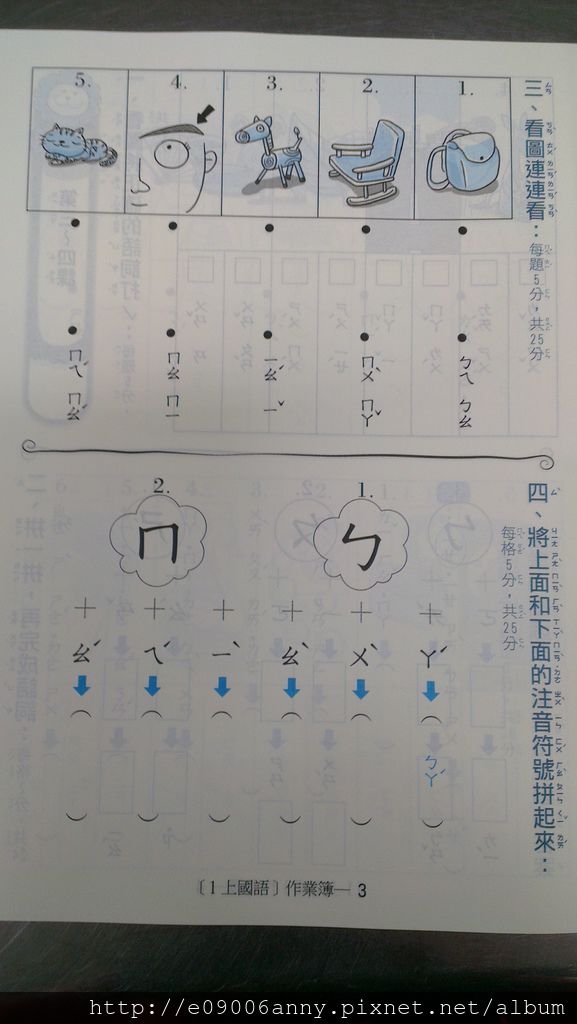 三、看圖連連看：每題5分，共25分
1.
2.
3.
4.
5.
ㄅㄟ ㄅㄠ
ㄇㄨˋ ㄇㄚˇ
ㄧㄠˊ ㄧˇ
ㄇㄠ ㄇㄧ
ㄇㄟˊ ㄇㄠˊ
四、將上面和下面的注音符號拼起來：
每格5分，共25分
1. ㄅ
＋ ㄚˊ （ ㄅㄚˊ ）
＋ ㄨˋ （ ）
＋ ㄠˋ （ ）
2. ㄇ
＋ ㄧˋ （ ）
＋ ㄟˊ （ ）
＋ ㄠˊ （ ）
〔1上國語〕作業簿—3
http://e09006anny.pixnet.net/album